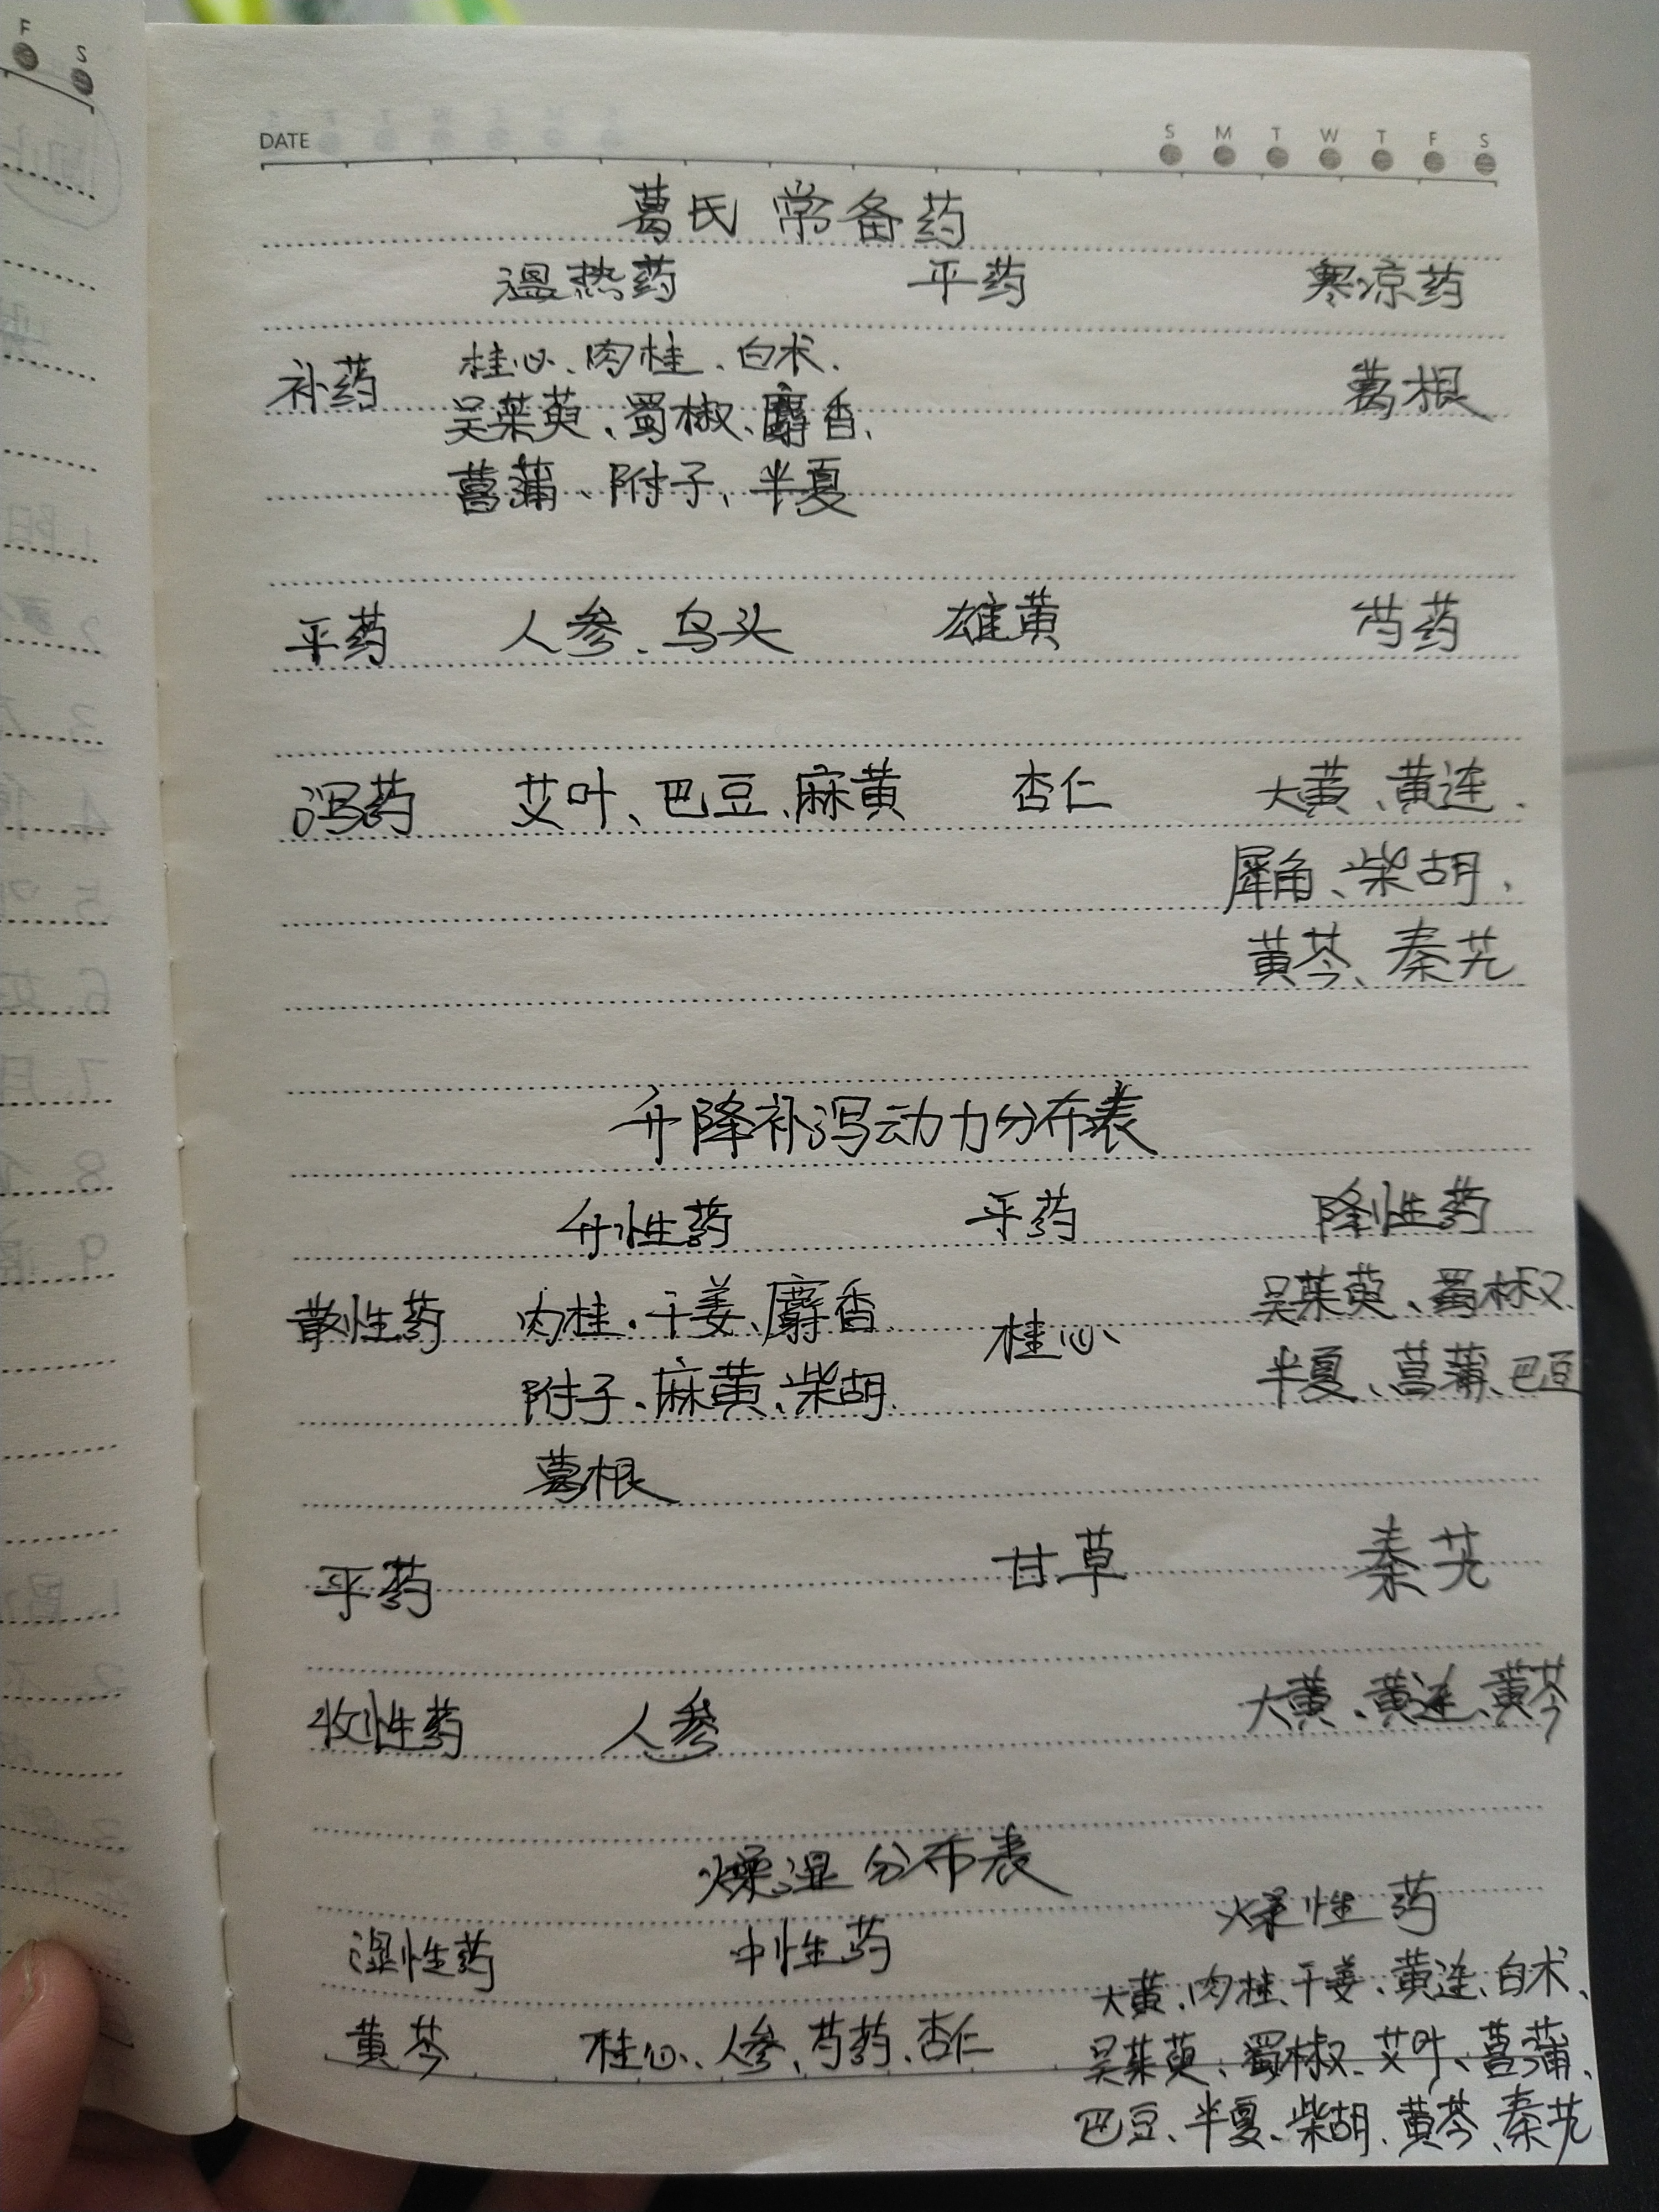 F S
DATE S M T W T F S
葛氏 常备药
温热药 平药 寒凉药
补药 桂心、肉桂、白术、 葛根
吴茱萸、蜀椒、麝香、
菖蒲、附子、半夏
平药 人参、乌头 雄黄 芍药
泻药 艾叶、巴豆、麻黄 杏仁 大黄、黄连、
犀角、柴胡、
黄芩、秦艽
升降补泻动力分布表
升性药 平药 降性药
散性药 肉桂、干姜、麝香 桂心 吴茱萸、蜀椒、
附子、麻黄、柴胡、 半夏、菖蒲、巴豆
葛根
平药 甘草 秦艽
收性药 人参 大黄、黄连、黄芩
燥湿分布表
湿性药 中性药 燥性药
黄芩 桂心、人参、芍药、杏仁 大黄、肉桂、干姜、黄连、白术、
吴茱萸、蜀椒、艾叶、菖蒲、
巴豆、半夏、柴胡、黄芩、秦艽